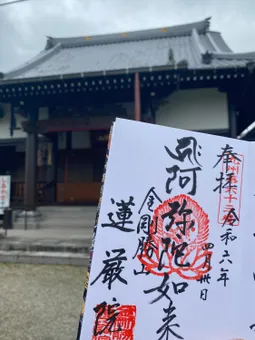 奉拝
令和六年
四月卅日
阿弥陀如来
金剛勝山
蓮厳院